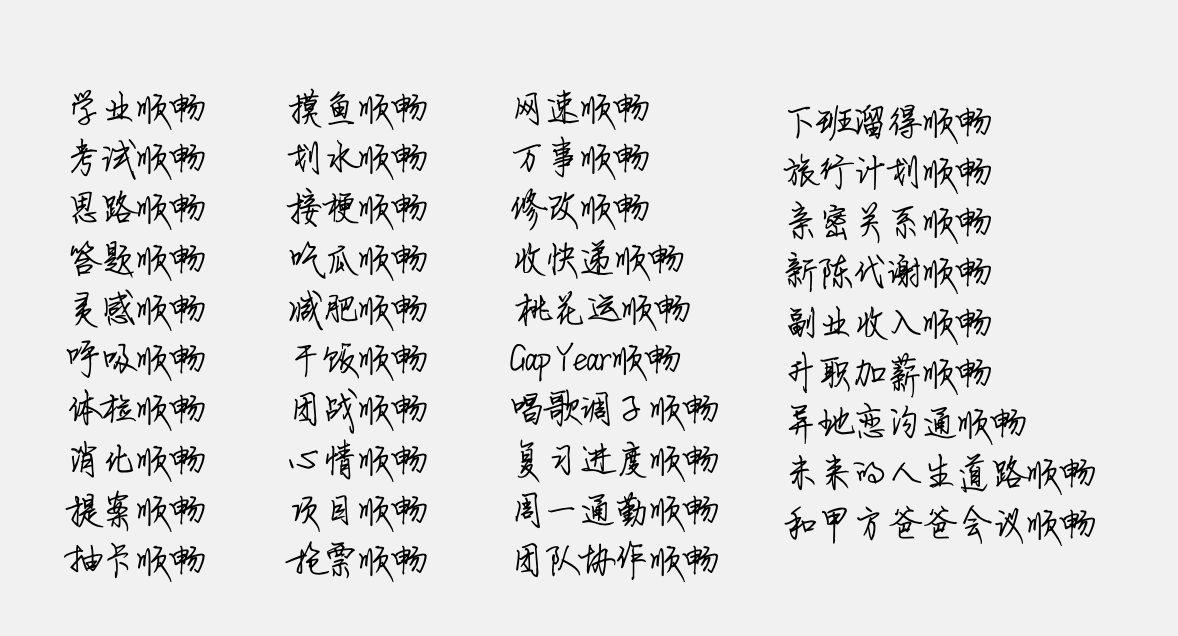 学业顺畅
考试顺畅
思路顺畅
答题顺畅
灵感顺畅
呼吸顺畅
体检顺畅
消化顺畅
提案顺畅
抽卡顺畅
摸鱼顺畅
划水顺畅
接梗顺畅
吃瓜顺畅
减肥顺畅
干饭顺畅
团战顺畅
心情顺畅
项目顺畅
抢票顺畅
网速顺畅
万事顺畅
修改顺畅
收快递顺畅
桃花运顺畅
Gap Year顺畅
唱歌调子顺畅
复习进度顺畅
周一通勤顺畅
团队协作顺畅
下班溜得顺畅
旅行计划顺畅
亲密关系顺畅
新陈代谢顺畅
副业收入顺畅
升职加薪顺畅
异地恋沟通顺畅
未来的人生道路顺畅
和甲方爸爸会议顺畅